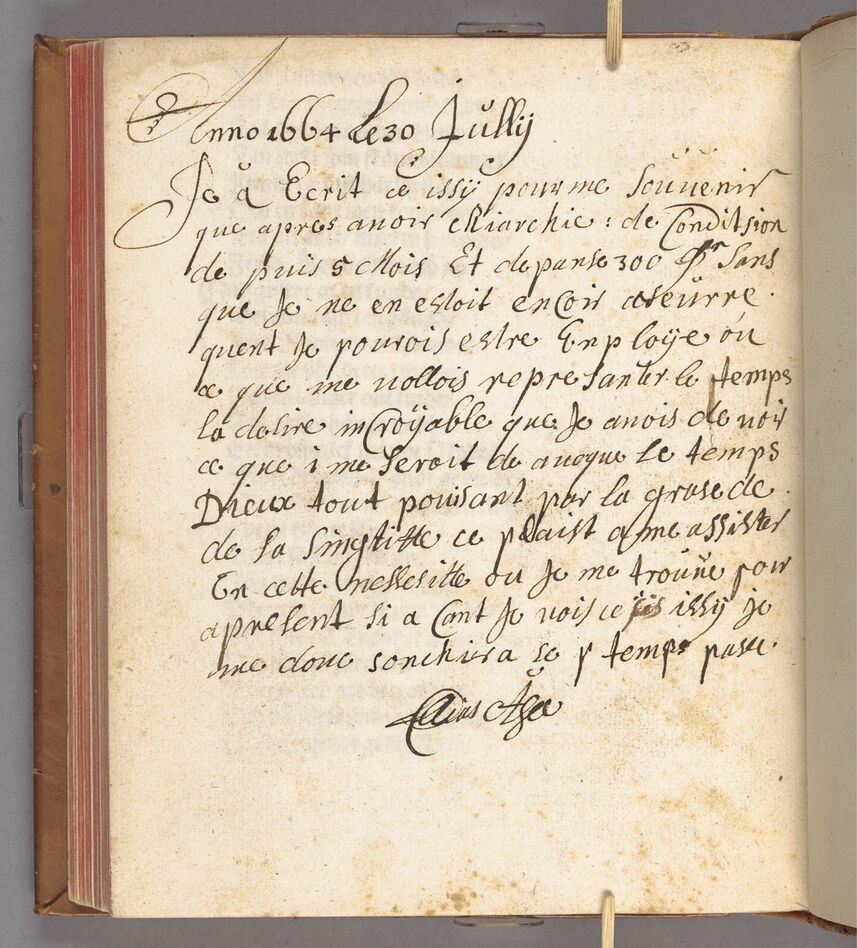 Anno 1664 Le 30 Jullij
Je a Ecrit ce issÿ pour me Souuenir
que apres auoir chiarchie : de Conditsion
de puis 5 Mois Et depanse 300 Sans
que Je ne en estoit encoir aseurre
quent Je pourois estre Enploÿe ou
ce que me uollois represanter le temps
la desire incroÿable que Je auois de uoir
ce que i me seroit de aueque Le temps
Dieux tout pouisant par la grase de
de sa Singtitte ce plaist a me assister
En cette nessesitte ou Je me trouue pour
apresent si a Cant Je uois ce issÿ je
me done sonchira se temps passe
Elias